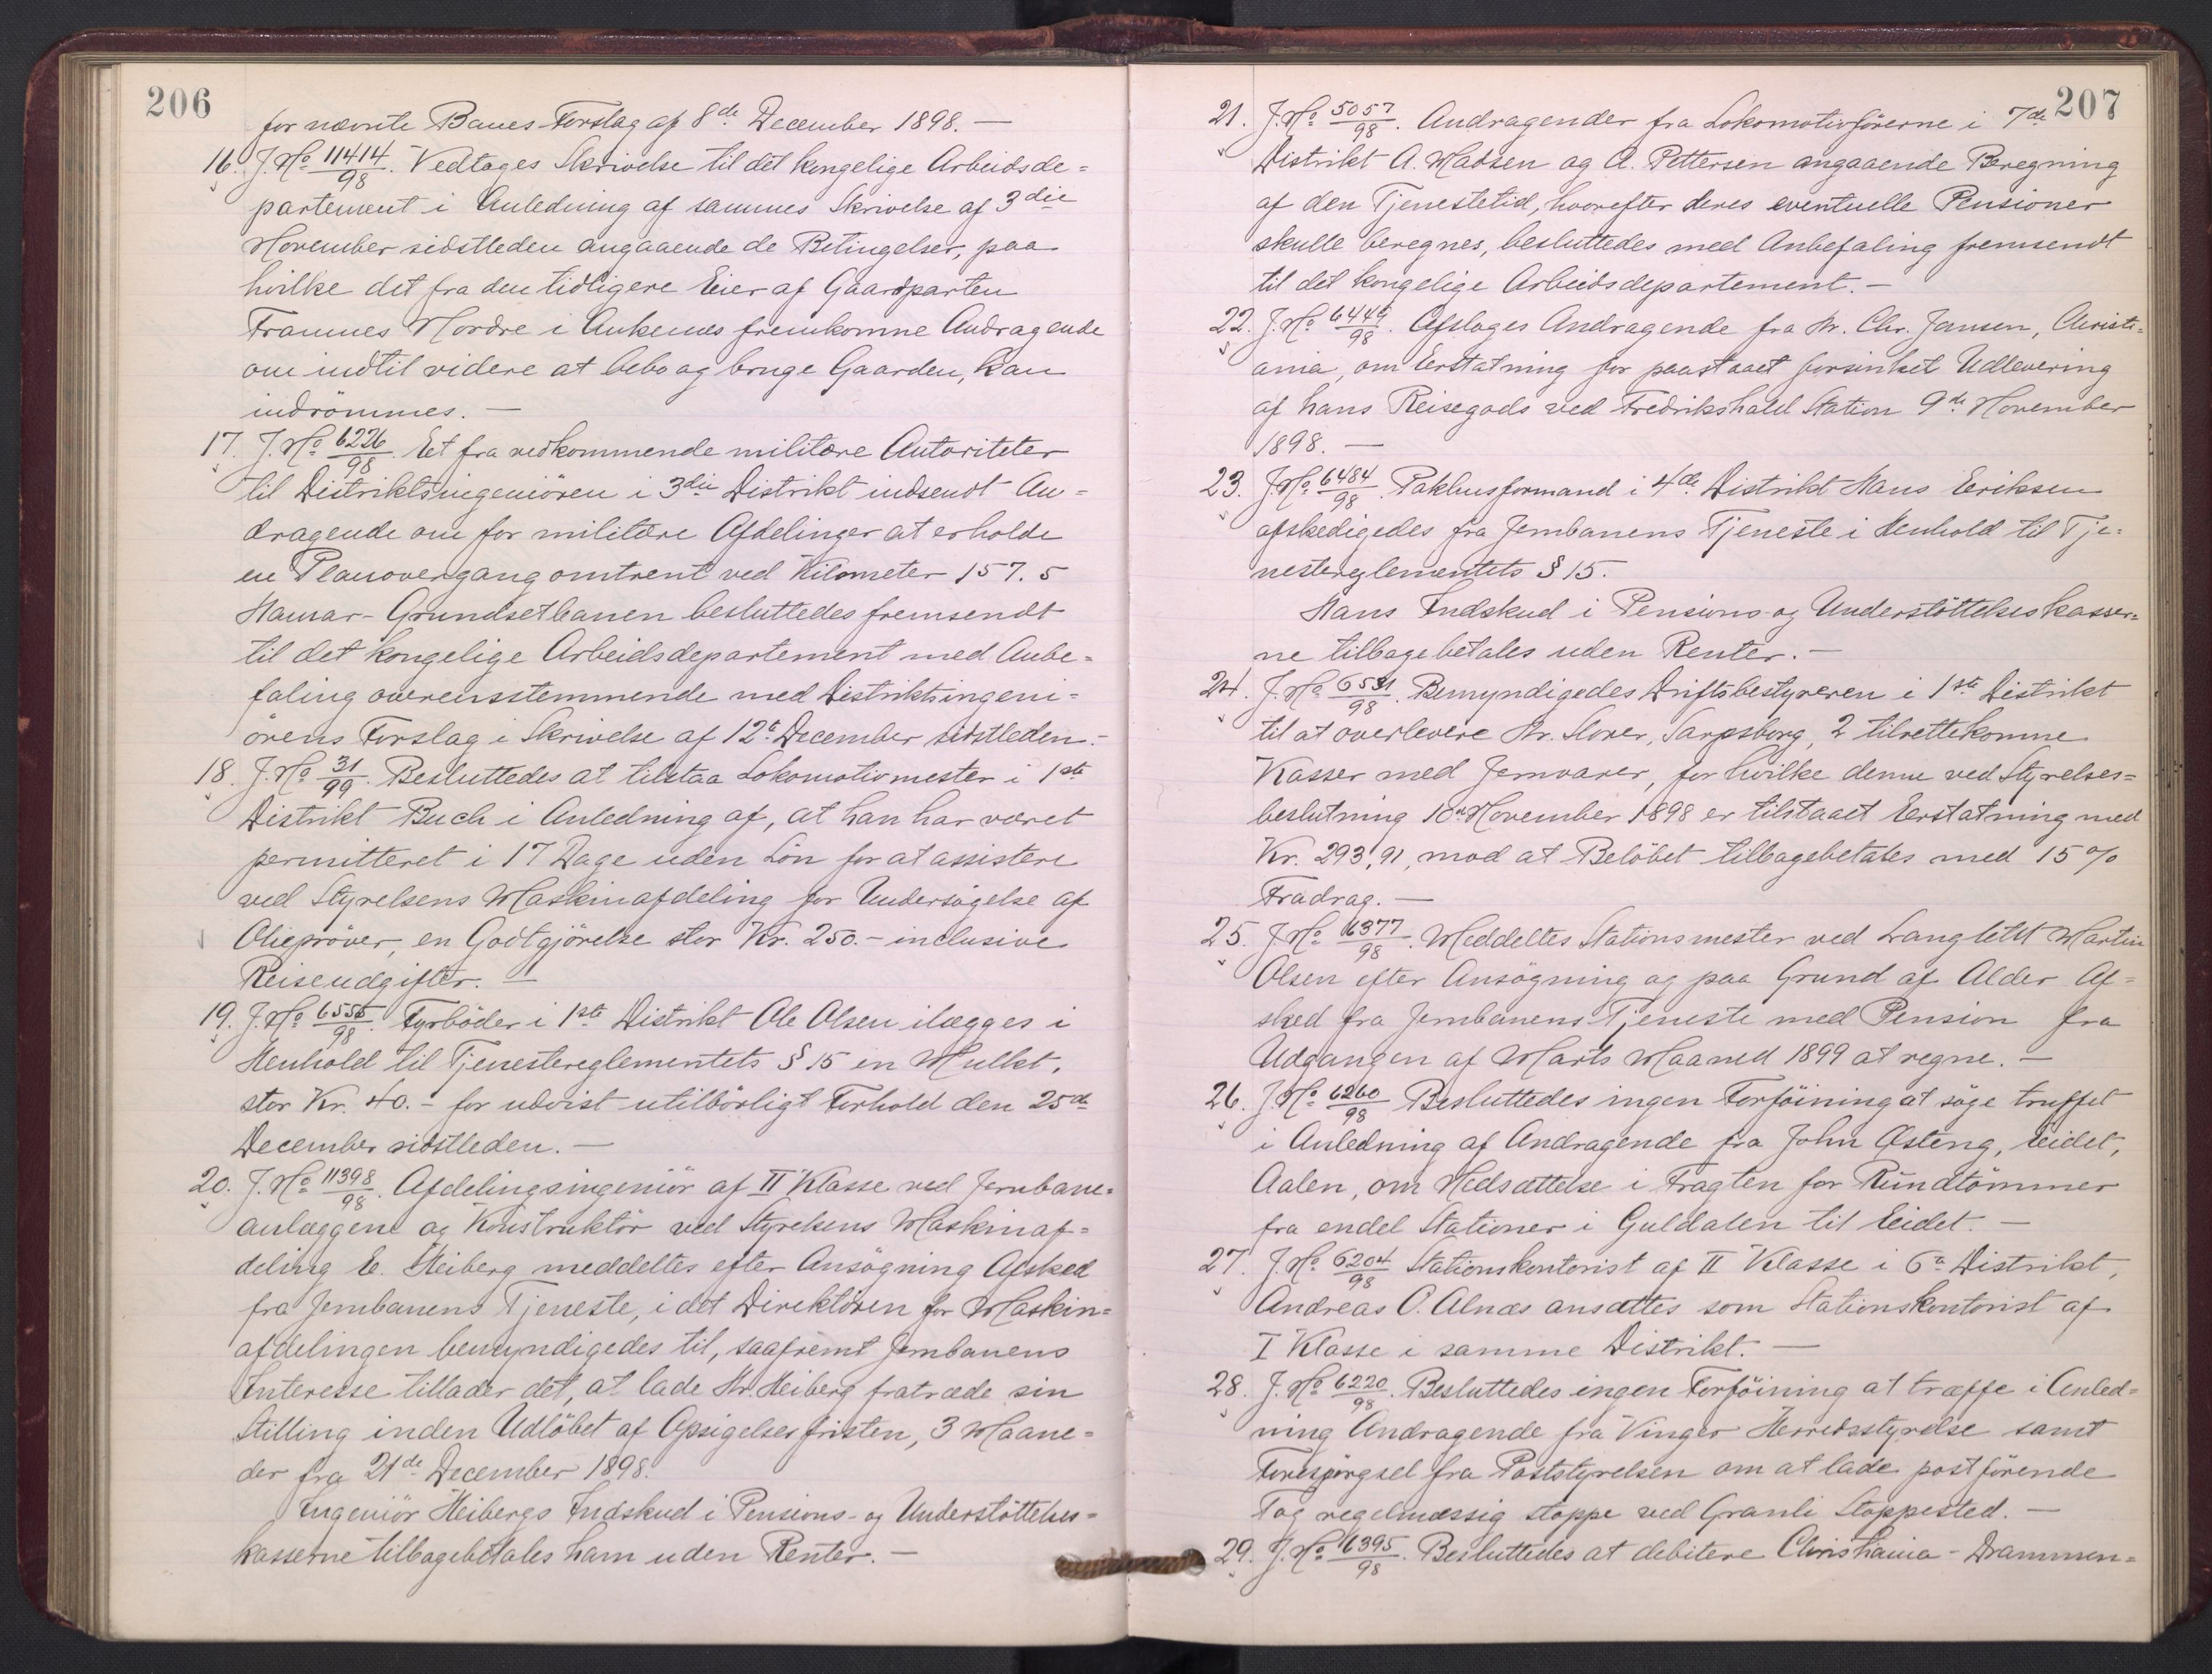 206
for nævnte Banes Forslag af 8de December 1898. —
16. J. No 11414/98. Vedtages Skrivelse til det kongelige Arbeidsde=
partement i Anledning af sammes Skrivelse af 3die
November sidstleden angaaende de Betingelser, paa
hvilke det fra den tidligere Eier af Gaardparten
Framnes Nordre i Ankenes fremkomne Andragende
om indtil videre at bebo og bruge Gaarden, kan
indrömmes. —
17. J. No 6226/98. Et fra vedkommende militære Autoriteter
til Distriktsingeniören i 3die Distrikt indsendt An=
dragende om for militære Afdelinger at erholde
en Planovergang omtrent ved Kilometer 157.5
Hamar-Grundsetbanen besluttedes fremsendt
til det kongelige Arbeidsdepartement med Anbe=
faling overensstemmende med Distriktsingeni=
örens Forslag i Skrivelse af 12te December sidstleden. —
18. J. No 31/99. Besluttedes at tilstaa Lokomotivmester i 1ste
Distrikt Buch i Anledning af, at han har været
permitteret i 17 Dage uden Lön for at assistere
ved Styrelsens Maskinafdeling for Undersögelse af
Oliepröver, en Godtgjörelse stor Kr. 250.- inclusive
Reiseudgifter. —
19. J. No 6555/98. Fyrböder i 1ste Distrikt Ole Olsen ilægges i
Henhold til Tjenestereglementets § 15 en Mulkt,
stor Kr. 40.- for udvist utilbörligt Forhold den 25de
December sidstleden. —
20. J. No 11398/98. Afdelingsingeniör af II Klasse ved Jernbane=
anlæggene og Konstruktör ved Styrelsens Maskinaf=
deling E. Heiberg meddeltes efter Ansögning Afsked
fra Jernbanens Tjeneste, idet Direktören for Maskin=
afdelingen bemyndigedes til, saafremt Jernbanens
Interesse tillader det, at lade Hr. Heiberg fratræde sin
Stilling inden Udlöbet af Opsigelsesfristen, 3 Maane=
der fra 21de December 1898.
Ingeniör Heibergs Indskud i Pensions- og Understöttelses=
kasserne tilbagebetales ham uden Renter. —
207
21. J. No 5057/98. Andragender fra Lokomotivförerne i 7de
Distrikt A. Madsen og A. Pettersen angaaende Beregning
af den Tjenestetid, hvorefter deres eventuelle Pensioner
skulle beregnes, besluttedes med Anbefaling fremsendt
til det kongelige Arbeidsdepartement. —
22. J. No 6449/98. Afslages Andragende fra Hr. Chr. Jansen, Christi=
ania, om Erstatning for paastaaet forsinket Udlevering
af hans Reisegods ved Fredrikshald Station 9de November
1898. —
23. J. No 6484/98. Pakhusformand i 4de Distrikt Hans Eriksen
afskedigedes fra Jernbanens Tjeneste i Henhold til Tje=
nestereglementets § 15.
Hans Indskud i Pensions- og Understöttelseskasser=
ne tilbagebetales uden Renter. —
24. J. No 6531/98. Bemyndigedes Driftsbestyreren i 1ste Distrikt
til at overlevere Hr. Storer, Sarpsborg, 2 tilrettekomne
Kasser med Jernvarer, for hvilke denne ved Styrelses=
beslutning 10de November 1898 er tilstaaet Erstatning med
Kr. 293,91, mod at Belöbet tilbagebetales med 15 %
Fradrag. —
25. J. No 6377/98. Meddeltes Stationsmester ved Langletet Martin
Olsen efter Ansögning og paa Grund af Alder Af=
sked fra Jernbanens Tjeneste med Pension fra
Udgangen af Marts Maaned 1899 at regne. —
26. J. No 6260/98 Besluttedes ingen Forföining at söge truffet
i Anledning af Andragende fra John Østeng, Eidet,
Aalen, om Nedsættelse i Fragten for Rundtömmer
fra endel Stationer i Guldalen til Eidet. —
27. J. No 6204/98 Stationskontorist af II Klasse i 6te Distrikt,
Andreas O. Alnæs ansættes som Stationskontorist af
I Klasse i samme Distrikt. —
28. J. No 6220/98. Besluttedes ingen Forföining at træffe i Anled=
ning Andragende fra Vinger Herredsstyrelse samt
Forespörgsel fra Poststyrelsen om at lade postförende
Tog regelmæssig stoppe ved Granli Stoppested. —
29. J. No 6395/98. Besluttedes at debitere Christiania-Drammen=